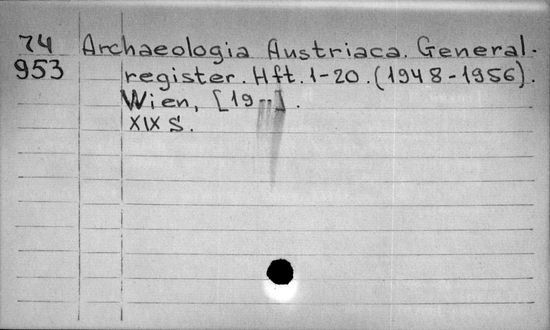 74 Archaeologia Austriaca. General-
953 register. Hft. 1-20. (1948-1956).
Wien, [19--].
XIX S.